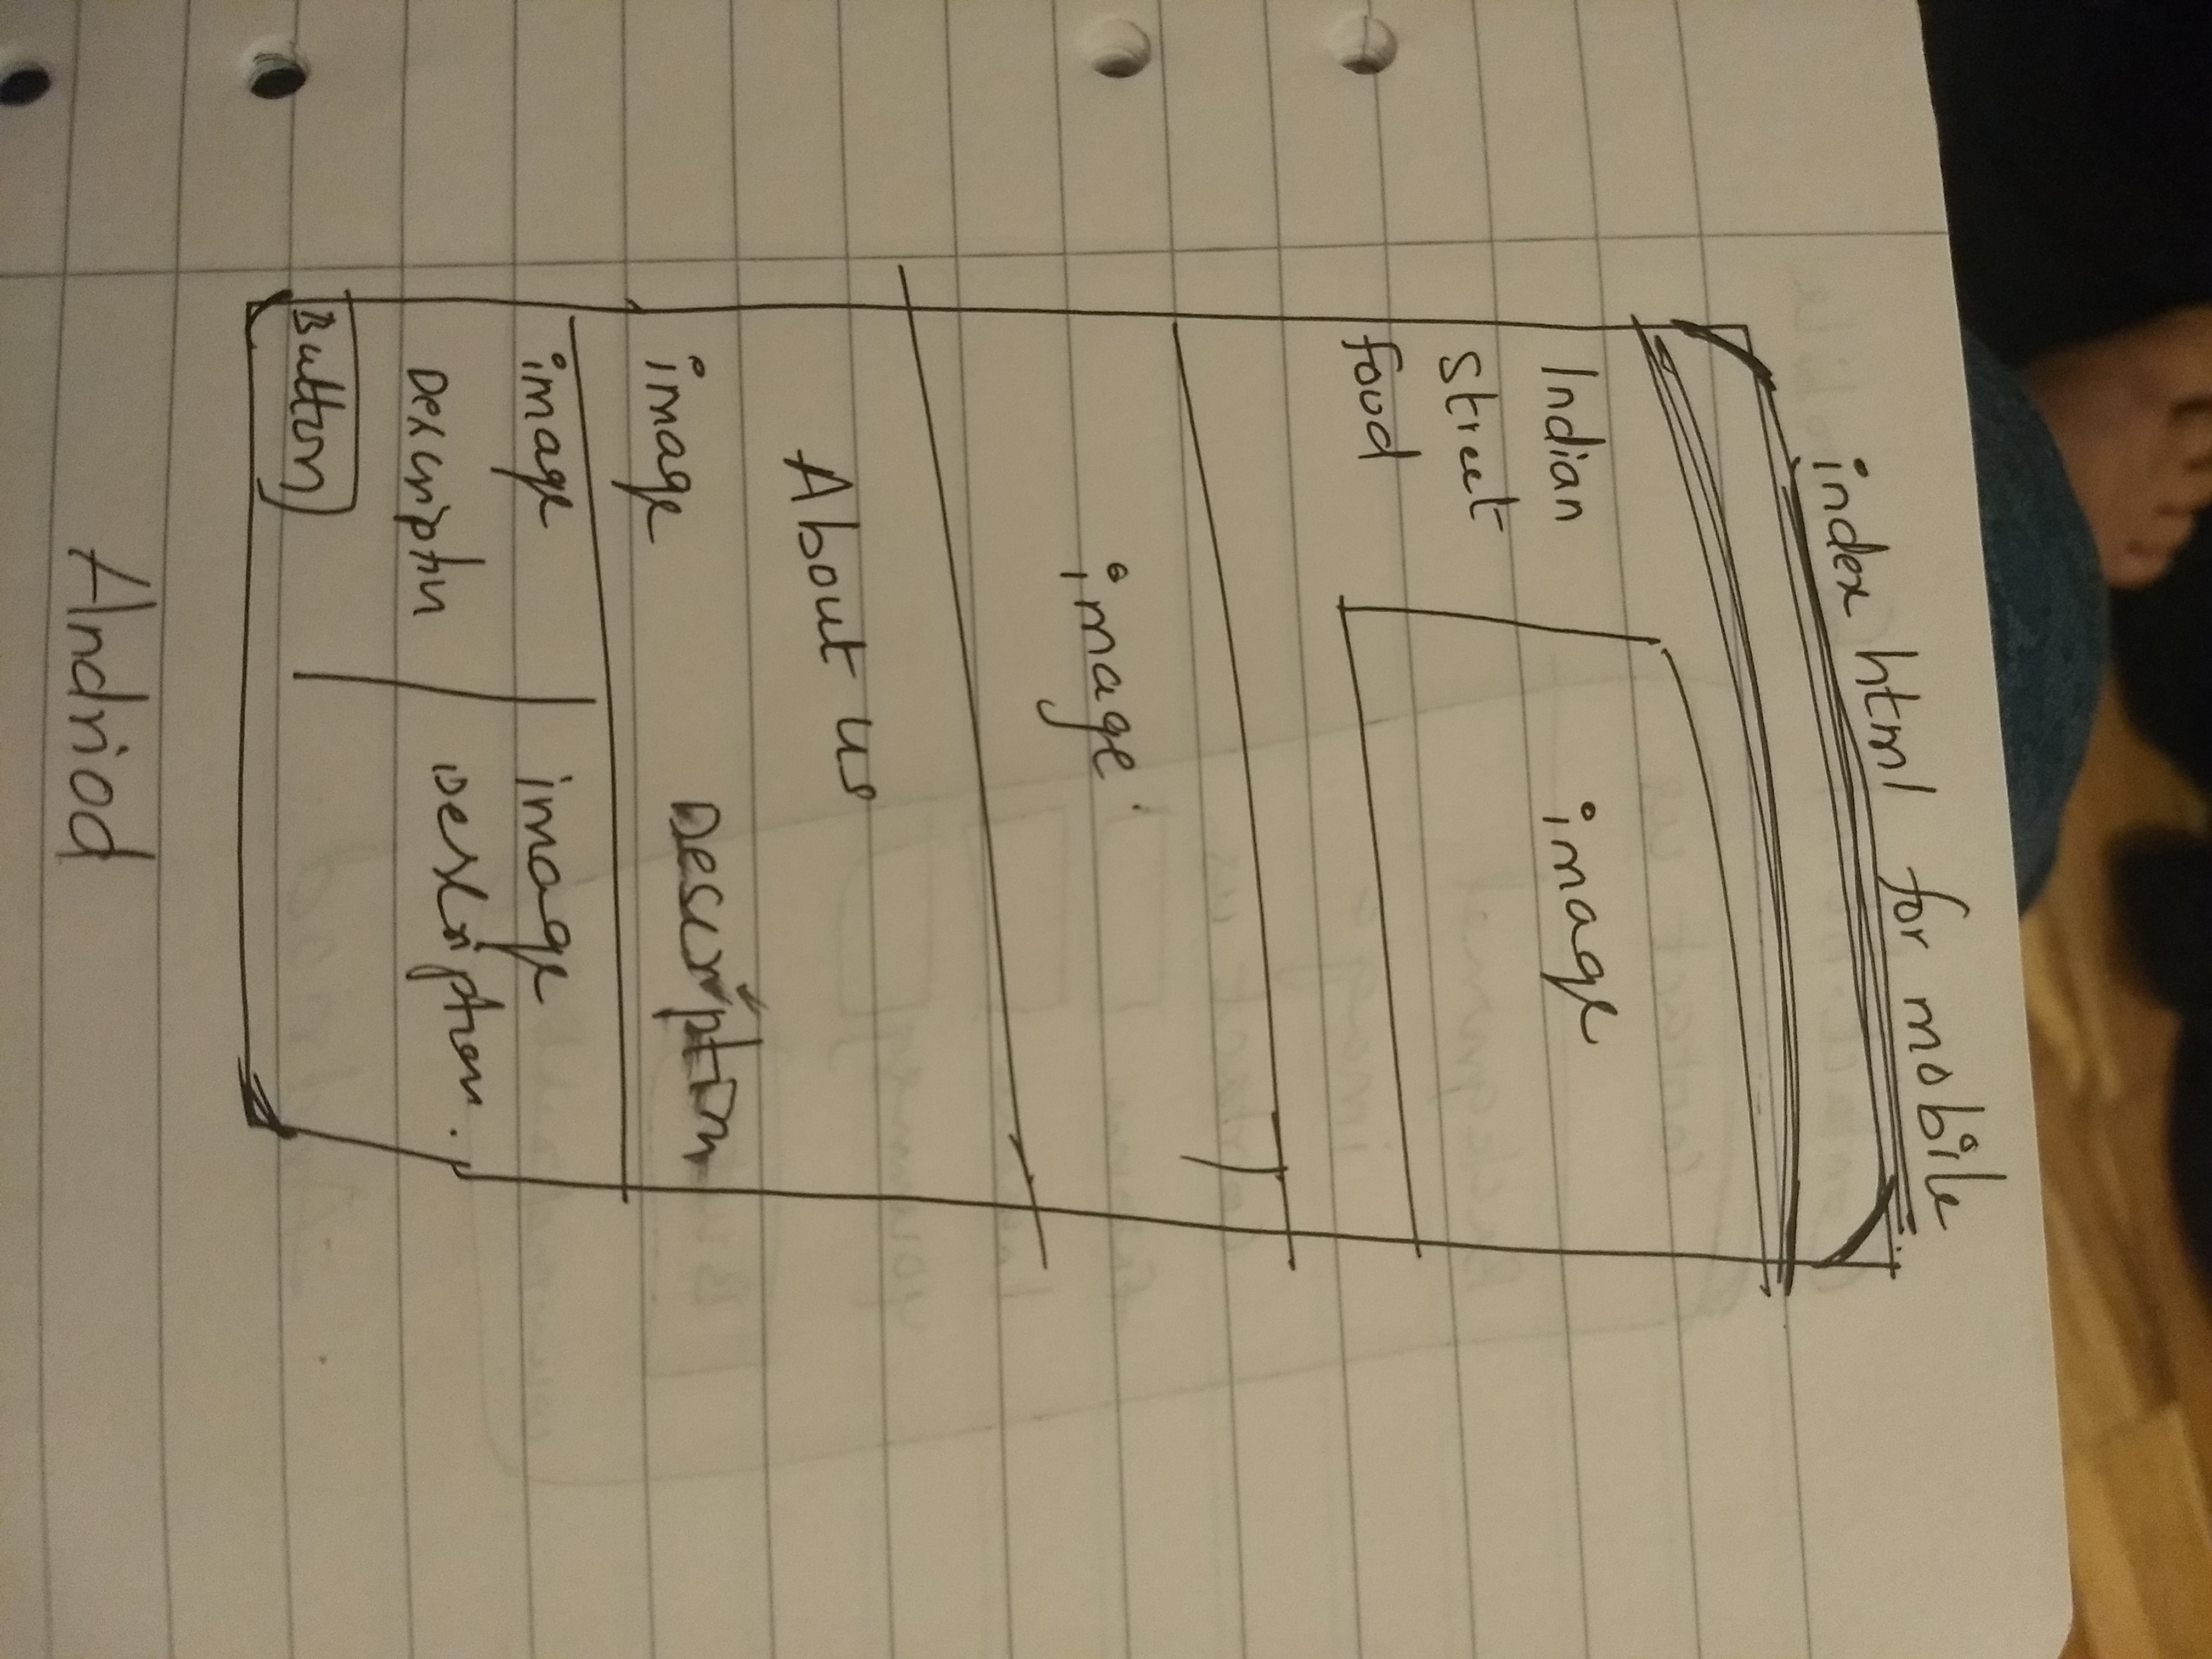 index html for mobile
Indian
Street
food
image
image
About us
image
Description
image
image
Description
Description.
Button
Andriod